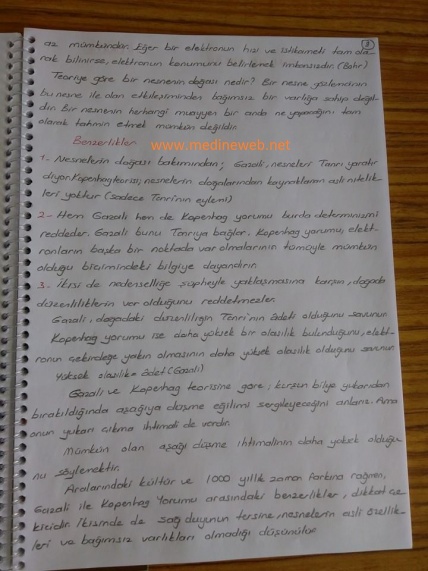 3
az mümkündür. Eğer bir elektronun hızı ve istikameti tam ola-
rak bilinirse, elektronun konumunu belirlemek imkansızdır. (Bohr)
Teoriye göre bir nesnenin doğası nedir? Bir nesne gözlemcinin
bu nesne ile olan etkileşiminden bağımsız bir varlığa sahip değil-
dir. Bir nesnenin herhangi muayyen bir anda ne yapacağını tam
olarak tahmin etmek mümkün değildir.
Benzerlikler
www.medineweb.net
1- Nesnelerin doğası bakımından; Gazali, nesneleri Tanrı yaratır
diyor. Kopenhag teorisi; nesnelerin doğalarından kaynaklanan asli nitelik-
leri yoktur (sadece Tanrı'nın eylemi)
2- Hem Gazali hem de Kopenhag yorumu burda determinizmi
reddeder. Gazali bunu Tanrıya bağlar. Kopenhag yorumu, elekt-
ronların başka bir noktada var olmalarının tümüyle mümkün
olduğu biçimindeki bilgiye dayandırır.
3- İkisi de nedenselliğe şüpheyle yaklaşmasına karşın, doğada
düzenliliklerin var olduğunu reddetmezler.
Gazali, doğadaki düzenliliğin Tanrı'nın âdeti olduğunu savunur.
Kopenhag yorumu ise daha yüksek bir olasılık bulunduğunu, elekt-
ronun çekirdeğe yakın olmasının daha yüksek olasılık olduğunu savunur.
Yüksek olasılık = âdet (Gazali)
Gazali ve Kopenhag teorisine göre; kurşun bilye yukarıdan
bırakıldığında aşağıya düşme eğilimi sergileyeceğini anlarız. Ama
onun yukarı çıkma ihtimali de vardır.
Mümkün olan aşağı düşme ihtimalinin daha yüksek olduğu-
nu söylenektir.
Aralarındaki kültür ve 1000 yıllık zaman farkına rağmen,
Gazali ile Kopenhag Yorumu arasındaki benzerlikler, dikkat çe-
kicidir. İkisinde de sağduyunun tersine, nesnelerin asli özellik-
leri ve bağımsız varlıkları olmadığı düşünülür